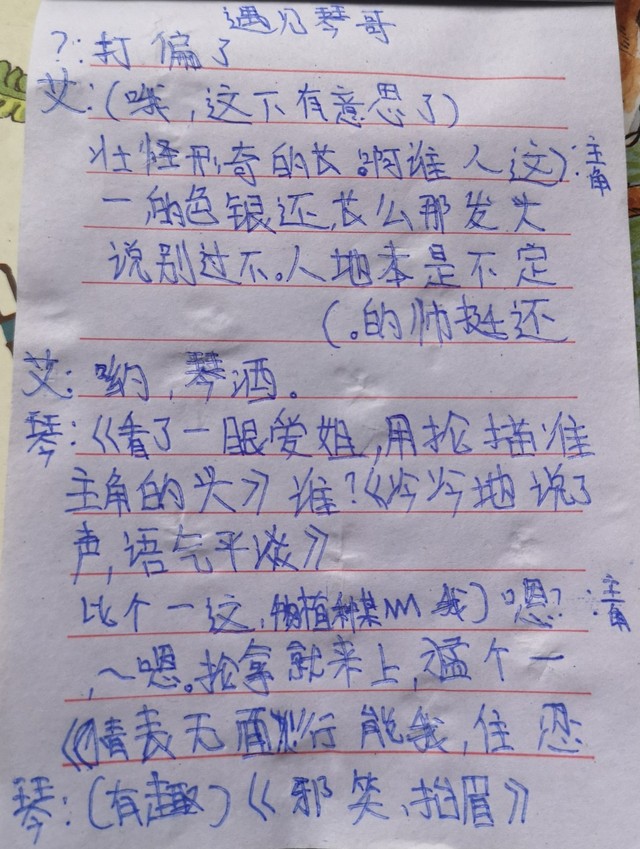 遇见琴哥
?:打偏了
艾:(哦,这下有意思了)
主角:(这人谁啊。长的奇形怪壮
头发那么长,还银色的一
定不是本地人。不过别说
还挺帅的。)
艾:哟,琴洒。
琴:《看了一眼爱姐,用抢描准
主角的头》谁?《冷冷地说了
声,语气平淡》
主角:嗯?(我某种植物,这一个比
一个猛,上来就拿抢。嗯~,
忍住,我能行 面无表情》
琴:(有趣)《邪笑,抬眉》